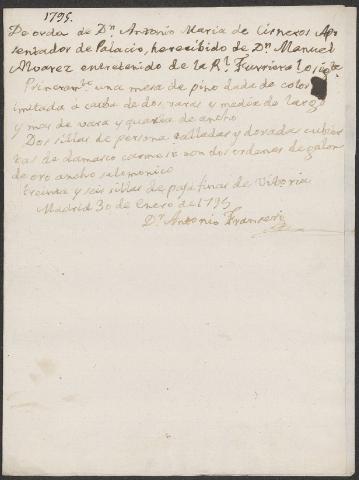 1795.
De orden de Dn. Antonio Maria de Cisneros Apo
sentador de Palacio, he recibido de Dn. Manuel
Alvarez entretenido de la Rl. Furriera lo sigte.
Primeramte. una mesa de pino dada de color
imitada a caoba de dos varas y media de largo
y mas de vara y quarta de ancho
Dos sillas de persona talladas y doradas cubier
tas de damasco carmesi con dos ordenes de galon
de oro ancho salomonico
treinta y seis sillas de paja finas de Vitoria
Madrid 30 de Enero de 1795
Dn. Antonio